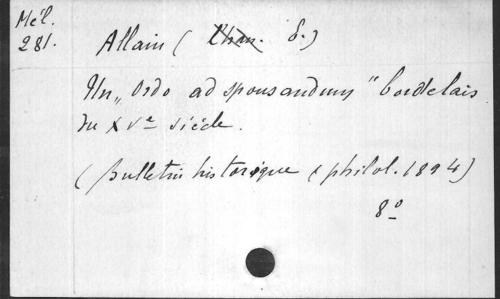 Mél.
281.
Allain ( Chan. E.)
Un „Ordo ad sponsandum" bordelais
du XVe siècle.
(Bulletin historique & philol. 1894)
8º